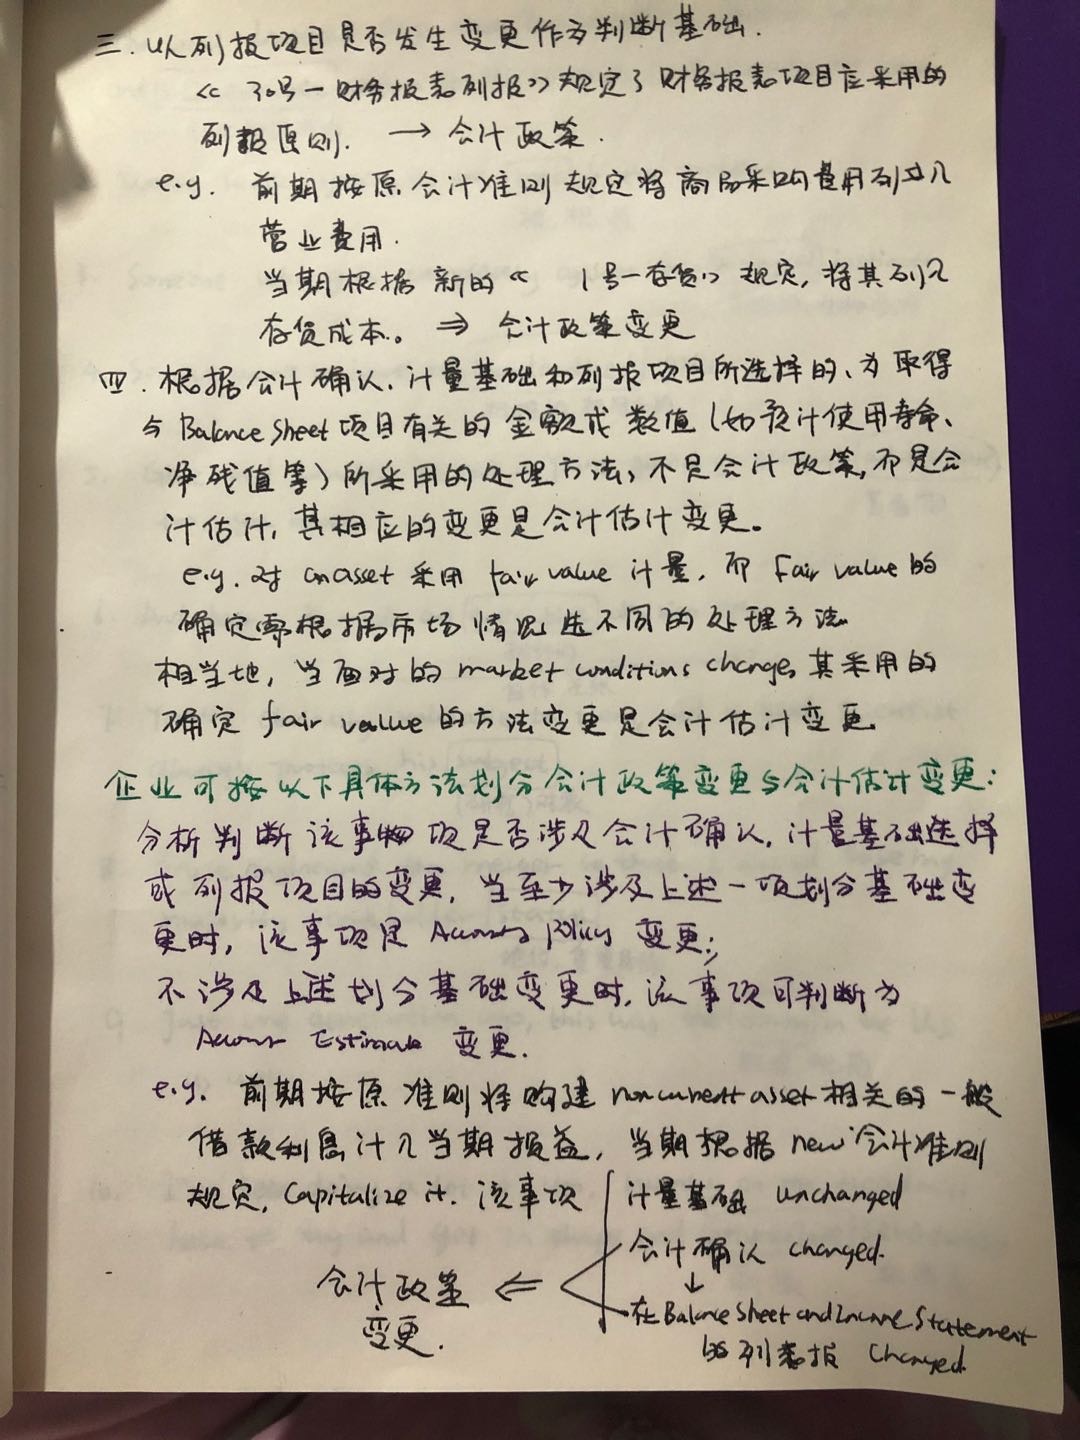 三. 以列报项目是否发生变更作为判断基础.
《 30号—财务报表列报》规定了财务报表项目应采用的
列報原则. → 会计政策.
e.g. 前期按原会计准则规定将商品采购费用列入
营业费用.
当期根据新的《 1号—存货》规定, 将其列入
存货成本。 ⇒ 会计政策变更
四. 根据会计确认、计量基础和列报项目所选择的、为取得
与Balance Sheet项目有关的金额或数值(如预计使用寿命、
净残值等)所采用的处理方法, 不是会计政策, 而是会
计估计, 其相应的变更是会计估计变更。
e.g. 对 an asset 采用 fair value 计量, 而 Fair value 的
确定需根据市场情况选不同的处理方法
相当地, 当面对的 market conditions change, 其采用的
确定 fair value 的方法变更是会计估计变更
企业可按以下具体方法划分会计政策变更与会计估计变更:
分析判断该事项是否涉及会计确认, 计量基础选择
或列报项目的变更, 当至少涉及上述一项划分基础变
更时, 该事项是 Policy 变更;
不涉及上述划分基础变更时, 该事项可判断为
Estimate 变更.
e.g. 前期按原准则将购建 noncurrent asset 相关的一般
借款利息计入当期损益, 当期根据 new 会计准则
规定, Capitalize it. 该事项 计量基础 unchanged
会计确认 changed.
↓
会计政策 ⇐ 在 Balance Sheet and Income Statement
变更. 的列表报 changed